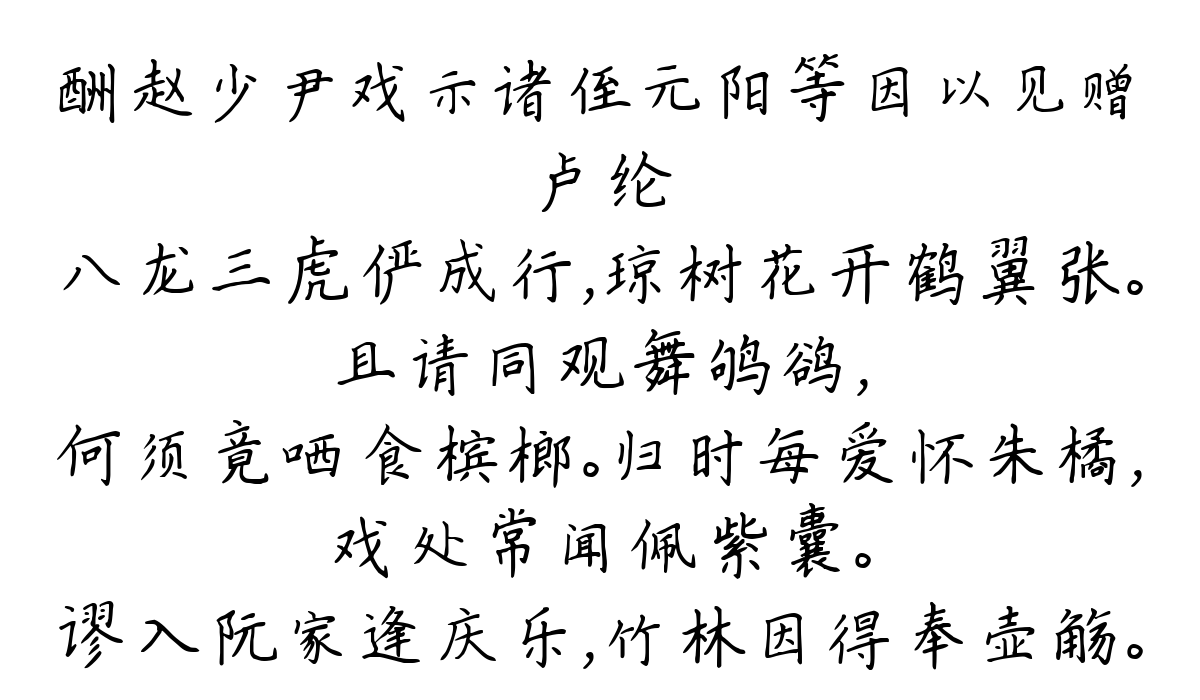 酬赵少尹戏示诸侄元阳等因以见赠
卢纶
八龙三虎俨成行,琼树花开鹤翼张。
且请同观舞鸲鹆,
何须竟哂食槟榔。归时每爱怀朱橘,
戏处常闻佩紫囊。
谬入阮家逢庆乐,竹林因得奉壶觞。